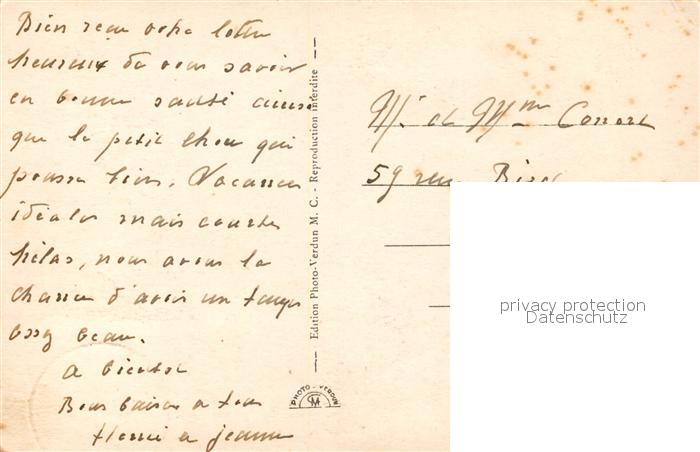 Bien reçu votre lettre
heureux de vous savoir
en bonne santé ainsi
que le petit chou qui
pousse bien. Vacances
idéales mais courtes
hélas, nous avons la
chance d'avoir un temps
assez beau.
a bientot
Bons baisers a tous
Henri et Jeanne
Edition Photo-Verdun M. C. - Reproduction interdite
PHOTO - VERDUN
MC
Mr et Mme
59 rue
privacy protection
Datenschutz